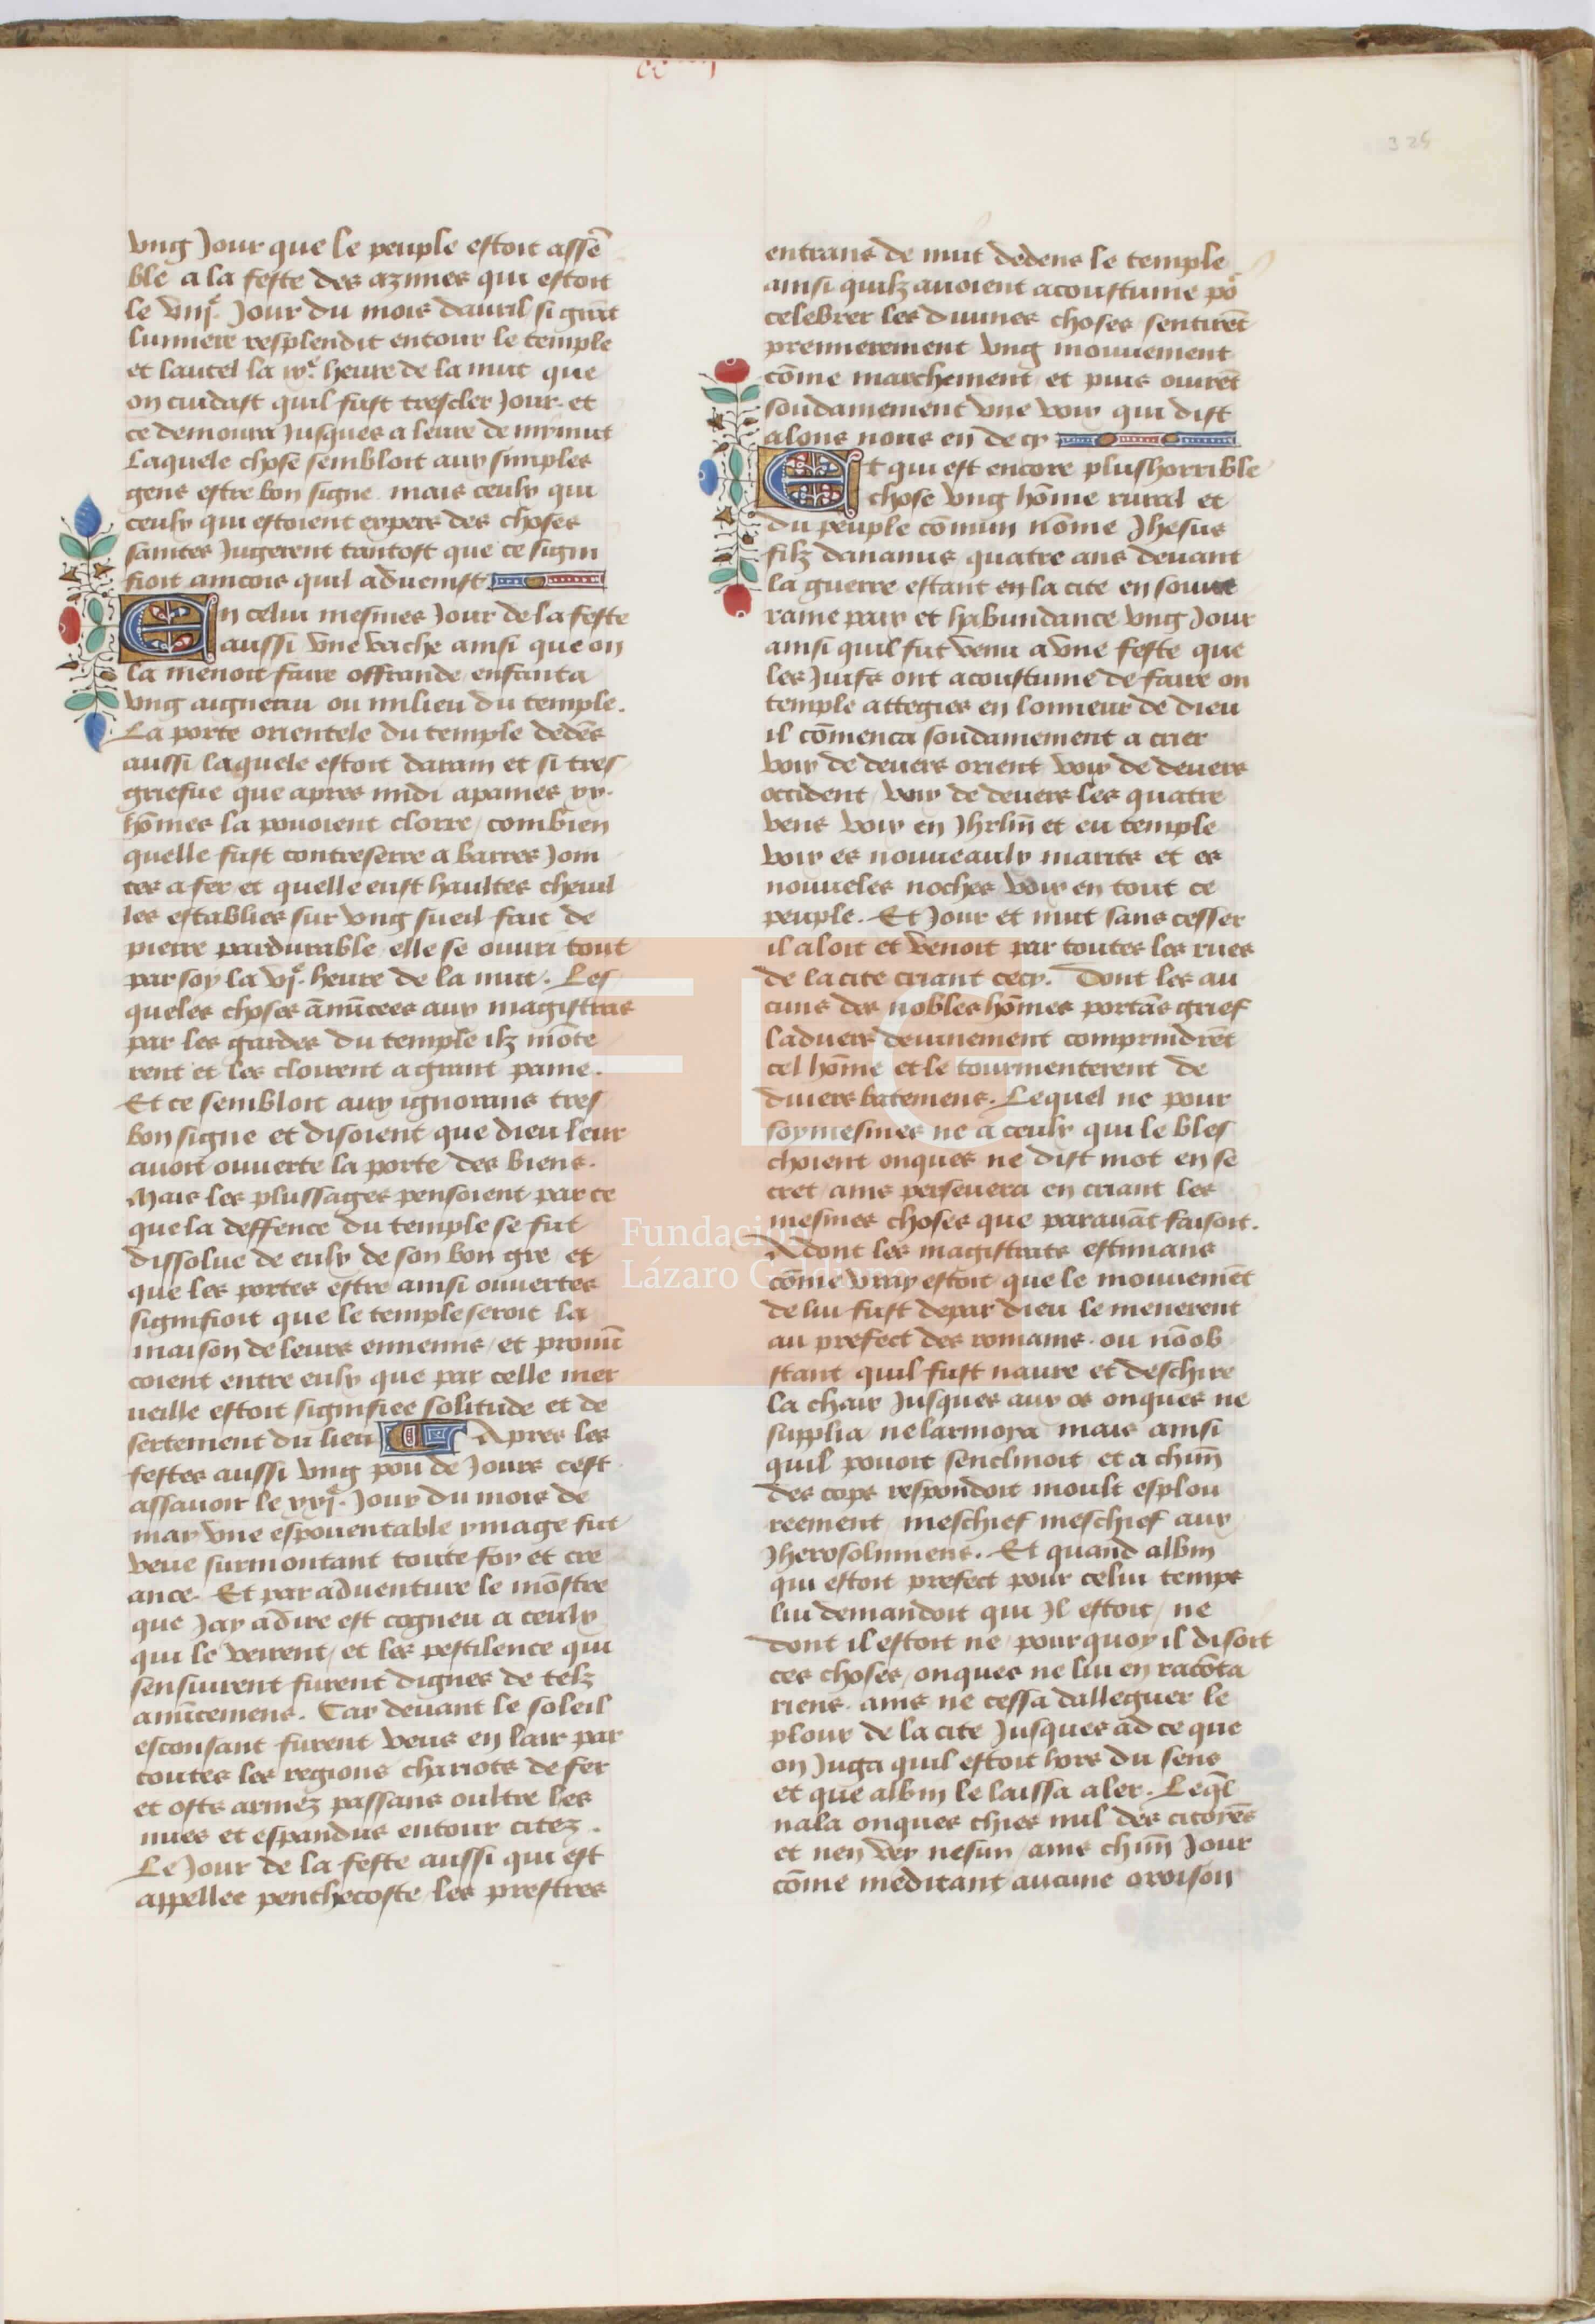 325
vng Jour que le peuple estoit assē
ble a la feste des azimes qui estoit
le viijᵉ. Jour du mois dauril si grāt
lumiere resplendit entour le temple
et lautel la ixᵉ. heure de la nuit que
on cuidast quil fust trescler Jour. et
ce demoura Jusques a leure de mynuit
Laquele chose sembloit aux simples
gens estre bon signe. mais ceulx qui
ceulx qui estoient expers des choses
saintes Jugerent tantost que ce signi
fioit aincois quil aduenist
En celui mesmes Jour de la feste
aussi vne vache ainsi que on
la menoit faire offrande enfanta
vng aigneau ou milieu du temple.
La porte orientele du temple dedēs
aussi laquele estoit darain et si tres
griefue que apres midi a paines xx.
hōmes la pouoient clorre / combien
quelle fust contreserre a barres Join
tes a fer et quelle eust haultes cheuil
les establies sur vng sueil fait de
pierre pardurable / elle se ouuri tout
par soy la vjᵉ. heure de la nuit. Les
queles choses ānūcees aux magistras
par les gardes du temple ilz mōte
rent et les cloirent a grant paine.
Et ce sembloit aux ignorans tres
bon signe et disoient que dieu leur
auoit ouuerte la porte des biens.
Mais les plussages pensoient par ce
que la deffence du temple se fut
dissolue de eulx de son bon gre et
que les portes estre ainsi ouuertes
signifioit que le temple seroit la
maison de leurs ennemis / et pronū
coient entre eulx que par celle mer
ueille estoit signifiee solitude et de
sertement du lieu Apres les
festes aussi vng pou de Jours cest
assauoir le xxjᵉ. Jour du mois de
may vne espouentable ymage fut
veue surmontant toute foy et cre
ance. Et par aduenture le mōstre
que Jay a dire est cogneu a ceulx
qui le veirent / et les pestilence qui
sensiuirent furent dignes de telz
anūcemens. Car deuant le soleil
esconsant furent veus en lair par
toutes les regions chariots de fer
et osts armez passans oultre les
nues et espandus entour citez.
Le Jour de la feste aussi qui est
appellee penthecoste les prestres
entrans de nuit dedens le temple
ainsi quilz auoient acoustume po͛
celebrer les diuines choses sentirēt
premierement vng mouuement
cōme marchement et puis ouirēt
soudainement vne voix qui dist
alons nous en de cy
Et qui est encore plushorrible
chose vng hōme rural et
du peuple cōmun nōme Jhesus
filz dananus quatre ans deuant
la guerre estant en la cite en souue
raine paix et habundance vng Jour
ainsi quil fut venu a vne feste que
les Juifs ont acoustume de faire on
temple attegies en lonneur de dieu
il cōmenca soudainement a crier
voix de deuers orient voix de deuers
occident / voix de deuers les quatre
vens voix en Jhrlm̄ et eu temple
voix es nouueaulx maris et es
nouueles noches voix en tout ce
peuple. Et Jour et nuit sans cesser
il aloit et venoit par toutes les rues
de la cite criant cecy. Dont les au
cuns des nobles hōmes portās grief
laduers deuinement comprindrēt
cel hōme et le tourmenterent de
diuers batemens. Lequel ne pour
soymesmes ne a ceulx qui le bles
choient onques ne dist mot en se
cret / ains perseuera en criant les
mesmes choses que parauāt faisoit.
Adont les magistrats estimans
cōme vray estoit que le mouuemēt
de lui fust depar dieu le menerent
au prefect des romains. ou nōob
stant quil fust naure et deschire
la chair Jusques aux os onques ne
supplia ne larmoya mais ainsi
quil pouoit senclinoit et a chūn
des cops respondoit moult esplou
reement meschief meschief aux
Jherosolimiens. Et quand albin
qui estoit prefect pour celui temps
lui demandoit qui Jl estoit / ne
dont il estoit ne / pour quoy il disoit
ces choses / onques ne lui en racōta
riens. ains ne cessa dalleguer le
plour de la cite Jusques ad ce que
on Juga quil estoit hors du sens
et que albin le laissa aler. Leq̄l
nala onques chies nul des citoyēs
et nen vey nesun / ains chūn Jour
cōme meditant aucune oroison
Fundación
Lázaro Galdiano